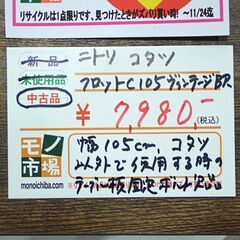 リサイクルは1点限りです、見つけたときがズバリ買い時! ~11/24迄
新品
未使用品
中古品
ニトリ コタツ
フロットC105ヴィンテージBR
¥7,980.-
(税込)
モノ市場
monoichiba.com
幅105cm、コタツ
以外で使用する時の
テーパー板固定ボルト欠品